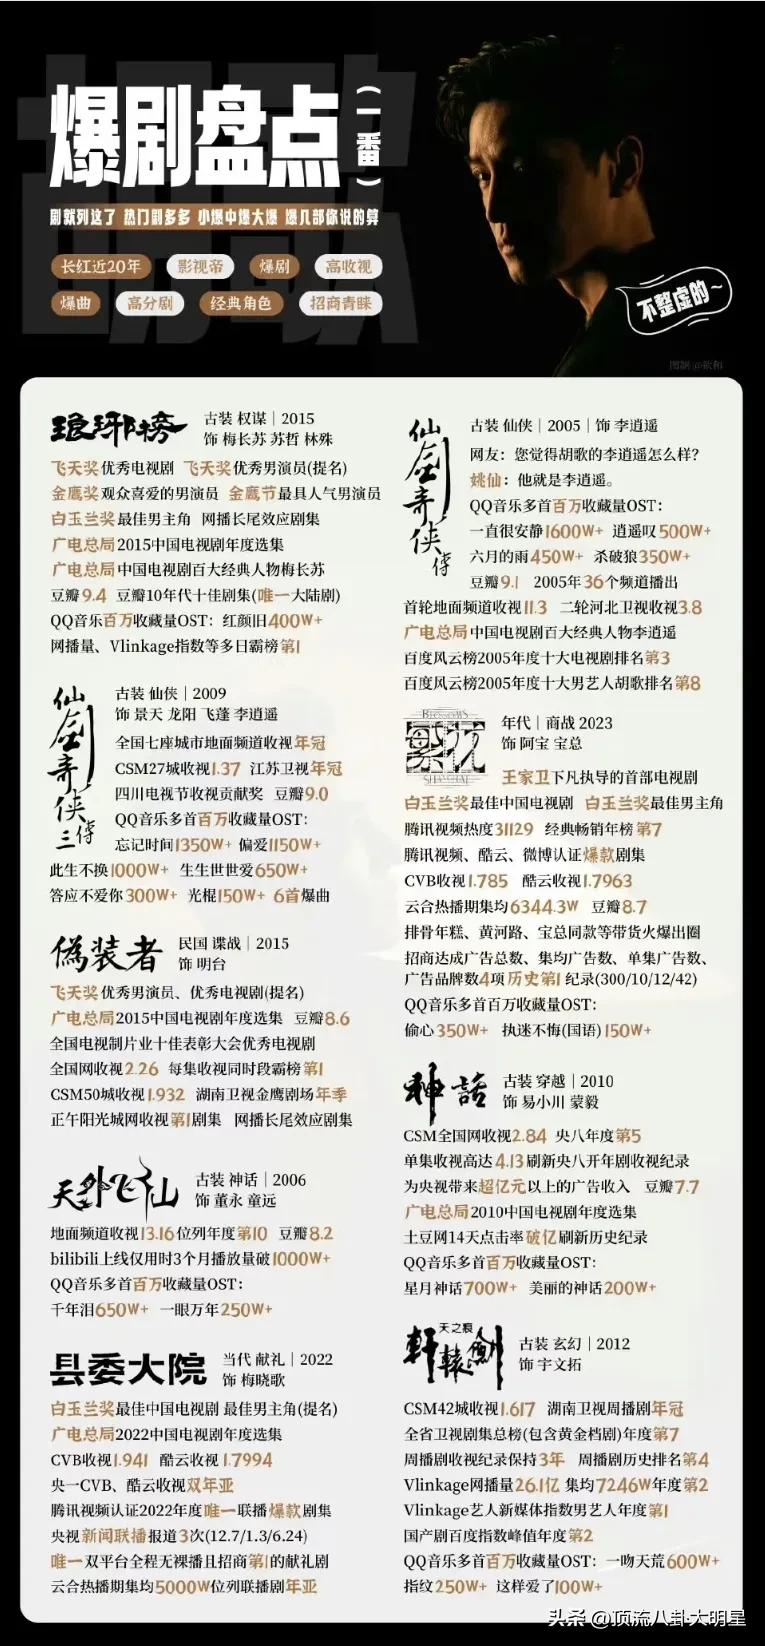 胡歌
爆剧盘点
(一番)
剧就列这了 热门剧多多 小爆中爆大爆 爆几部你说的算
长红近20年 影视帝 爆剧 高收视
爆曲 高分剧 经典角色 招商青睐
不整虚的~
图制@歆和
琅琊榜
古装 权谋|2015
饰 梅长苏 苏哲 林殊
飞天奖优秀电视剧 飞天奖优秀男演员(提名)
金鹰奖观众喜爱的男演员 金鹰节最具人气男演员
白玉兰奖最佳男主角 网播长尾效应剧集
广电总局2015中国电视剧年度选集
广电总局中国电视剧百大经典人物梅长苏
豆瓣9.4 豆瓣10年代十佳剧集(唯一大陆剧)
QQ音乐百万收藏量OST：红颜旧400W+
网播量、Vlinkage指数等多日霸榜第1
仙剑奇侠传三
古装 仙侠|2009
饰 景天 龙阳 飞蓬 李逍遥
全国七座城市地面频道收视年冠
CSM27城收视1.37 江苏卫视年冠
四川电视节收视贡献奖 豆瓣9.0
QQ音乐多首百万收藏量OST：
忘记时间1350W+ 偏爱1150W+
此生不换1000W+ 生生世世爱650W+
答应不爱你300W+ 光棍150W+ 6首爆曲
伪装者
民国 谍战|2015
饰 明台
飞天奖优秀男演员、优秀电视剧(提名)
广电总局2015中国电视剧年度选集 豆瓣8.6
全国电视制片业十佳表彰大会优秀电视剧
全国网收视2.26 每集收视同时段霸榜第1
CSM50城收视1.932 湖南卫视金鹰剧场年季
正午阳光城网收视第1剧集 网播长尾效应剧集
天外飞仙
古装 神话|2006
饰 董永 童远
地面频道收视13.16位列年度第10 豆瓣8.2
bilibili上线仅用时3个月播放量破1000W+
QQ音乐多首百万收藏量OST：
千年泪650W+ 一眼万年250W+
县委大院
当代 献礼|2022
饰 梅晓歌
白玉兰奖最佳中国电视剧 最佳男主角(提名)
广电总局2022中国电视剧年度选集
CVB收视1.941 酷云收视1.7994
央一CVB、酷云收视双年亚
腾讯视频认证2022年度唯一联播爆款剧集
央视新闻联播报道3次(12.7/1.3/6.24)
唯一双平台全程无裸播且招商第1的献礼剧
云合热播期集均5000W位列联播剧年亚
仙剑奇侠传
古装 仙侠|2005|饰 李逍遥
网友：您觉得胡歌的李逍遥怎么样?
姚仙：他就是李逍遥。
QQ音乐多首百万收藏量OST：
一直很安静1600W+ 逍遥叹500W+
六月的雨450W+ 杀破狼350W+
豆瓣9.1 2005年36个频道播出
首轮地面频道收视11.3 二轮河北卫视收视3.8
广电总局中国电视剧百大经典人物李逍遥
百度风云榜2005年度十大电视剧排名第3
百度风云榜2005年度十大男艺人胡歌排名第8
BLOSSOMS
繁花
SHANGHAI
年代|商战 2023
饰 阿宝 宝总
王家卫下凡执导的首部电视剧
白玉兰奖最佳中国电视剧 白玉兰奖最佳男主角
腾讯视频热度31129 经典畅销年榜第7
腾讯视频、酷云、微博认证爆款剧集
CVB收视1.785 酷云收视1.7963
云合热播期集均6344.3W 豆瓣8.7
排骨年糕、黄河路、宝总同款等带货火爆出圈
招商达成广告总数、集均广告数、单集广告数、
广告品牌数4项历史第1纪录(300/10/12/42)
QQ音乐多首百万收藏量OST：
偷心350W+ 执迷不悔(国语)150W+
神話
古装 穿越|2010
饰 易小川 蒙毅
CSM全国网收视2.84 央八年度第5
单集收视高达4.13刷新央八开年剧收视纪录
为央视带来超亿元以上的广告收入 豆瓣7.7
广电总局2010中国电视剧年度选集
土豆网14天点击率破亿刷新历史纪录
QQ音乐多首百万收藏量OST：
星月神话700W+ 美丽的神话200W+
軒轅劍
天之痕
古装 玄幻|2012
饰 宇文拓
CSM42城收视1.617 湖南卫视周播剧年冠
全省卫视剧集总榜(包含黄金档剧)年度第7
周播剧收视纪录保持3年 周播剧历史排名第4
Vlinkage网播量26.1亿 集均7246W年度第2
Vlinkage艺人新媒体指数男艺人年度第1
国产剧百度指数峰值年度第2
QQ音乐多首百万收藏量OST：一吻天荒600W+
指纹250W+ 这样爱了100W+
头条 @顶流八卦大明星